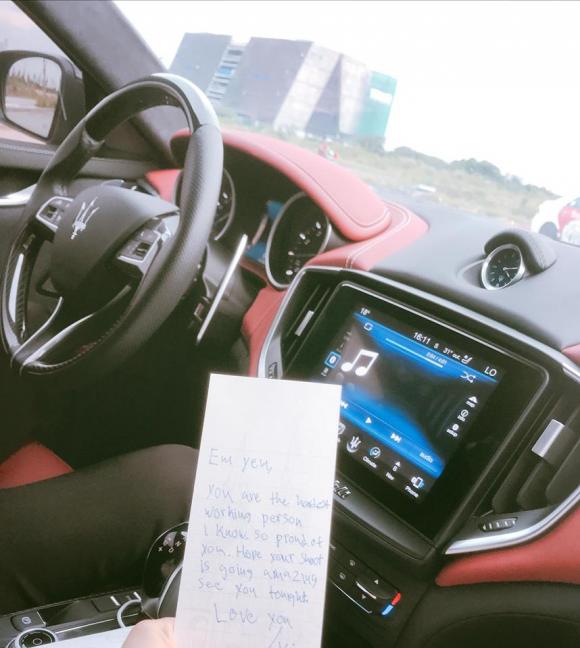 18°
16:11
31° out
LO
0:00 / 4:01
audio
Climate
Nav
Phone
Em yeu,
You are the hardest
working person
I know. so proud of
you. Hope your shoot
is going amazing
see you tonight.
Love you